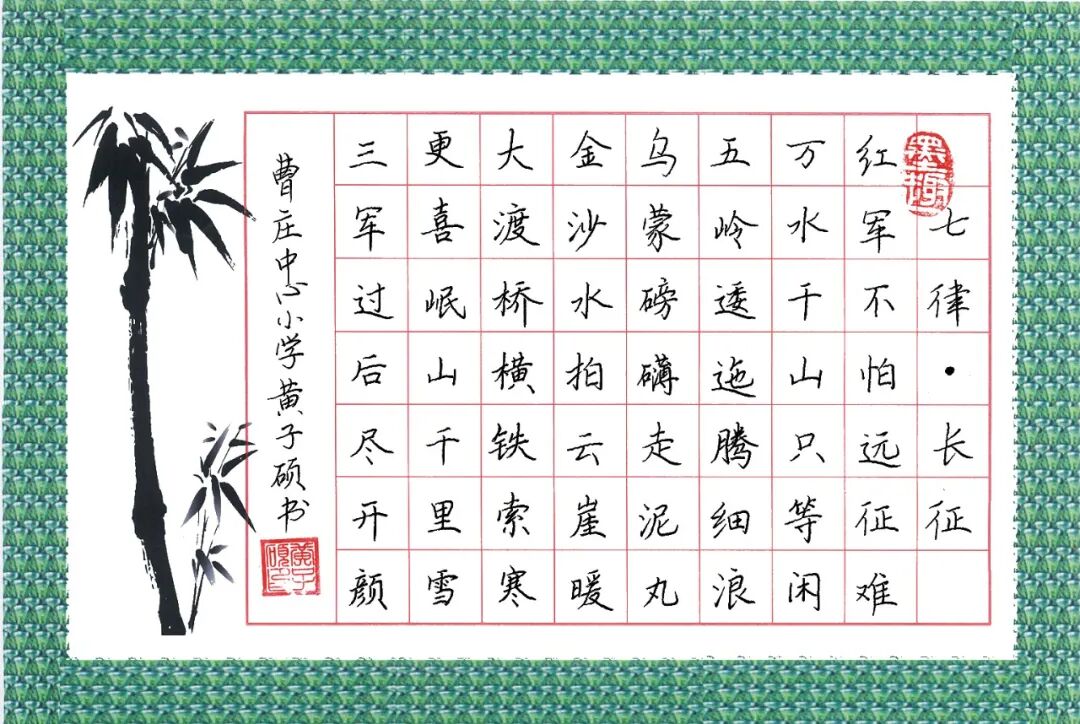 墨趣
七律·长征
红军不怕远征难
万水千山只等闲
五岭逶迤腾细浪
乌蒙磅礴走泥丸
金沙水拍云崖暖
大渡桥横铁索寒
更喜岷山千里雪
三军过后尽开颜
曹庄中心小学黄子硕书
黄子硕印